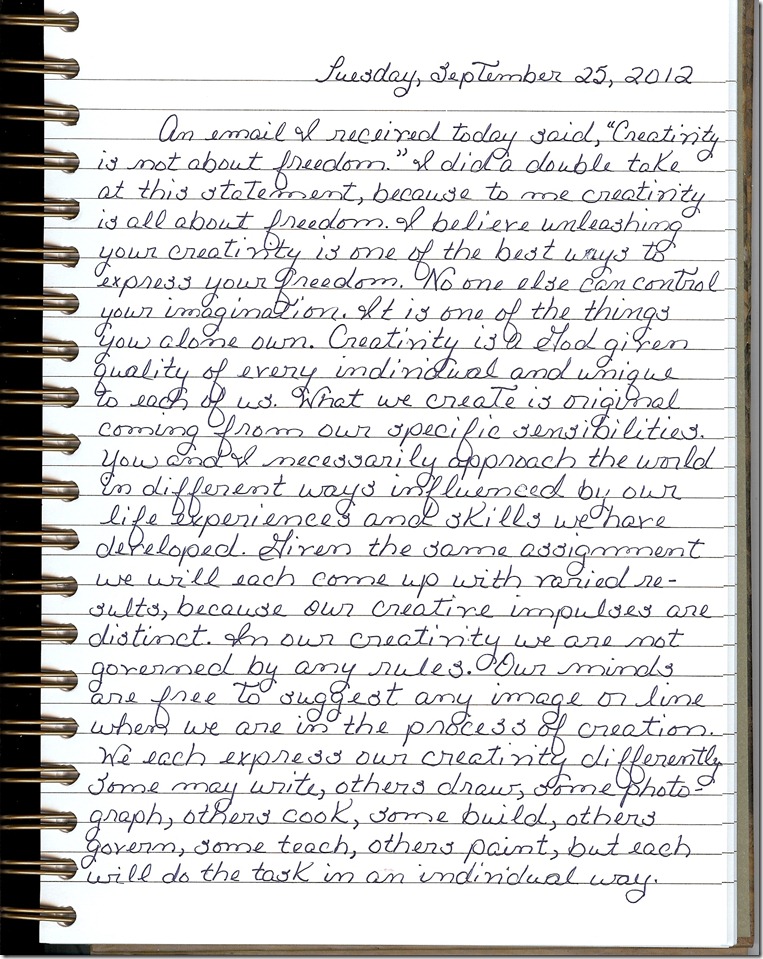 Tuesday, September 25, 2012
An email I received today said, "Creativity
is not about freedom." I did a double take
at this statement, because to me creativity
is all about freedom. I believe unleashing
your creativity is one of the best ways to
express your freedom. No one else can control
your imagination. It is one of the things
you alone own. Creativity is a God given
quality of every individual and unique
to each of us. What we create is original
coming from our specific sensibilities.
You and I necessarily approach the world
in different ways influenced by our
life experiences and skills we have
developed. Given the same assignment
we will each come up with varied re-
sults, because our creative impulses are
distinct. In our creativity we are not
governed by any rules. Our minds
are free to suggest any image or line
when we are in the process of creation.
We each express our creativity differently
some may write, others draw, some photo-
graph, others cook, some build, others
govern, some teach, others paint, but each
will do the task in an individual way.